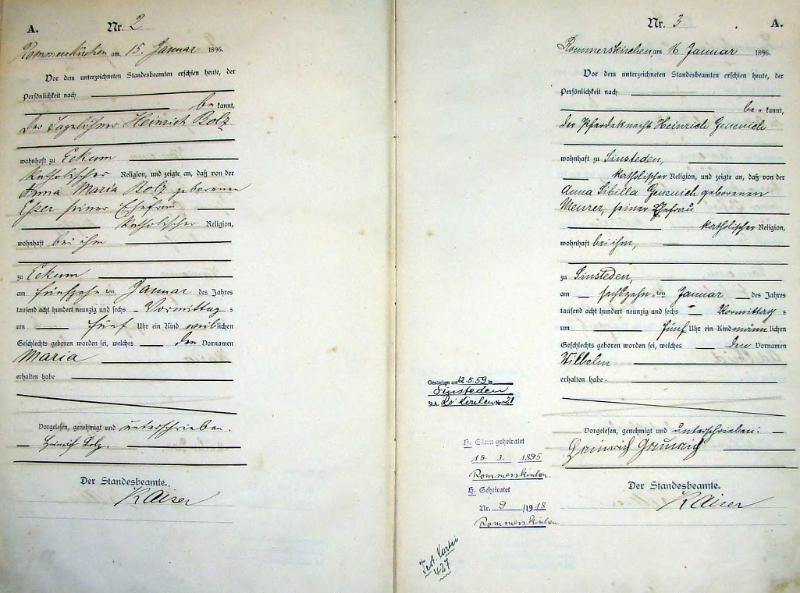 A.
Nr. 2
Rommerskirchen am 15. Januar 1896.
Vor dem unterzeichneten Standesbeamten erschien heute, der
Persönlichkeit nach
be kannt,
der Tagelöhner Heinrich Bolz
wohnhaft zu Eckum
katholischer Religion, und zeigte an, daß von der
Anna Maria Bolz geborenen
Esser seiner Ehefrau
katholischer Religion,
wohnhaft bei ihm
zu Eckum
am fünfzehnten Januar des Jahres
tausend acht hundert neunzig und sechs Vormittags
um fünf Uhr ein Kind weiblichen
Geschlechts geboren worden sei, welches den Vornamen
Maria
erhalten habe
Vorgelesen, genehmigt und unterschrieben.
Heinrich Bolz.
Der Standesbeamte.
Kaiser
Nr. 3
A.
Rommerskirchen, am 16 Januar 1896.
Vor dem unterzeichneten Standesbeamten erschien heute, der
Persönlichkeit nach
be kannt,
der Pferdeknecht Heinrich
wohnhaft zu Sinsteden,
katholischer Religion, und zeigte an, daß von der
Anna Sibilla geborenen
Meurer, seiner Ehefrau
katholischer Religion,
wohnhaft bei ihm,
zu Sinsteden,
am sechszehnten Januar des Jahres
tausend acht hundert neunzig und sechs Vormittags
um fünf Uhr ein Kind männlichen
Geschlechts geboren worden sei, welches den Vornamen
Wilhelm
erhalten habe.
Vorgelesen, genehmigt und unterschrieben:
Heinrich
Der Standesbeamte.
Kaiser
Gestorben am 12.5.59 in
Sinsteden
StA. Nr. 21
Eltern geheiratet
1895
Rommerskirchen
Geheiratet
Nr. 9 /1918
Rommerskirchen
427